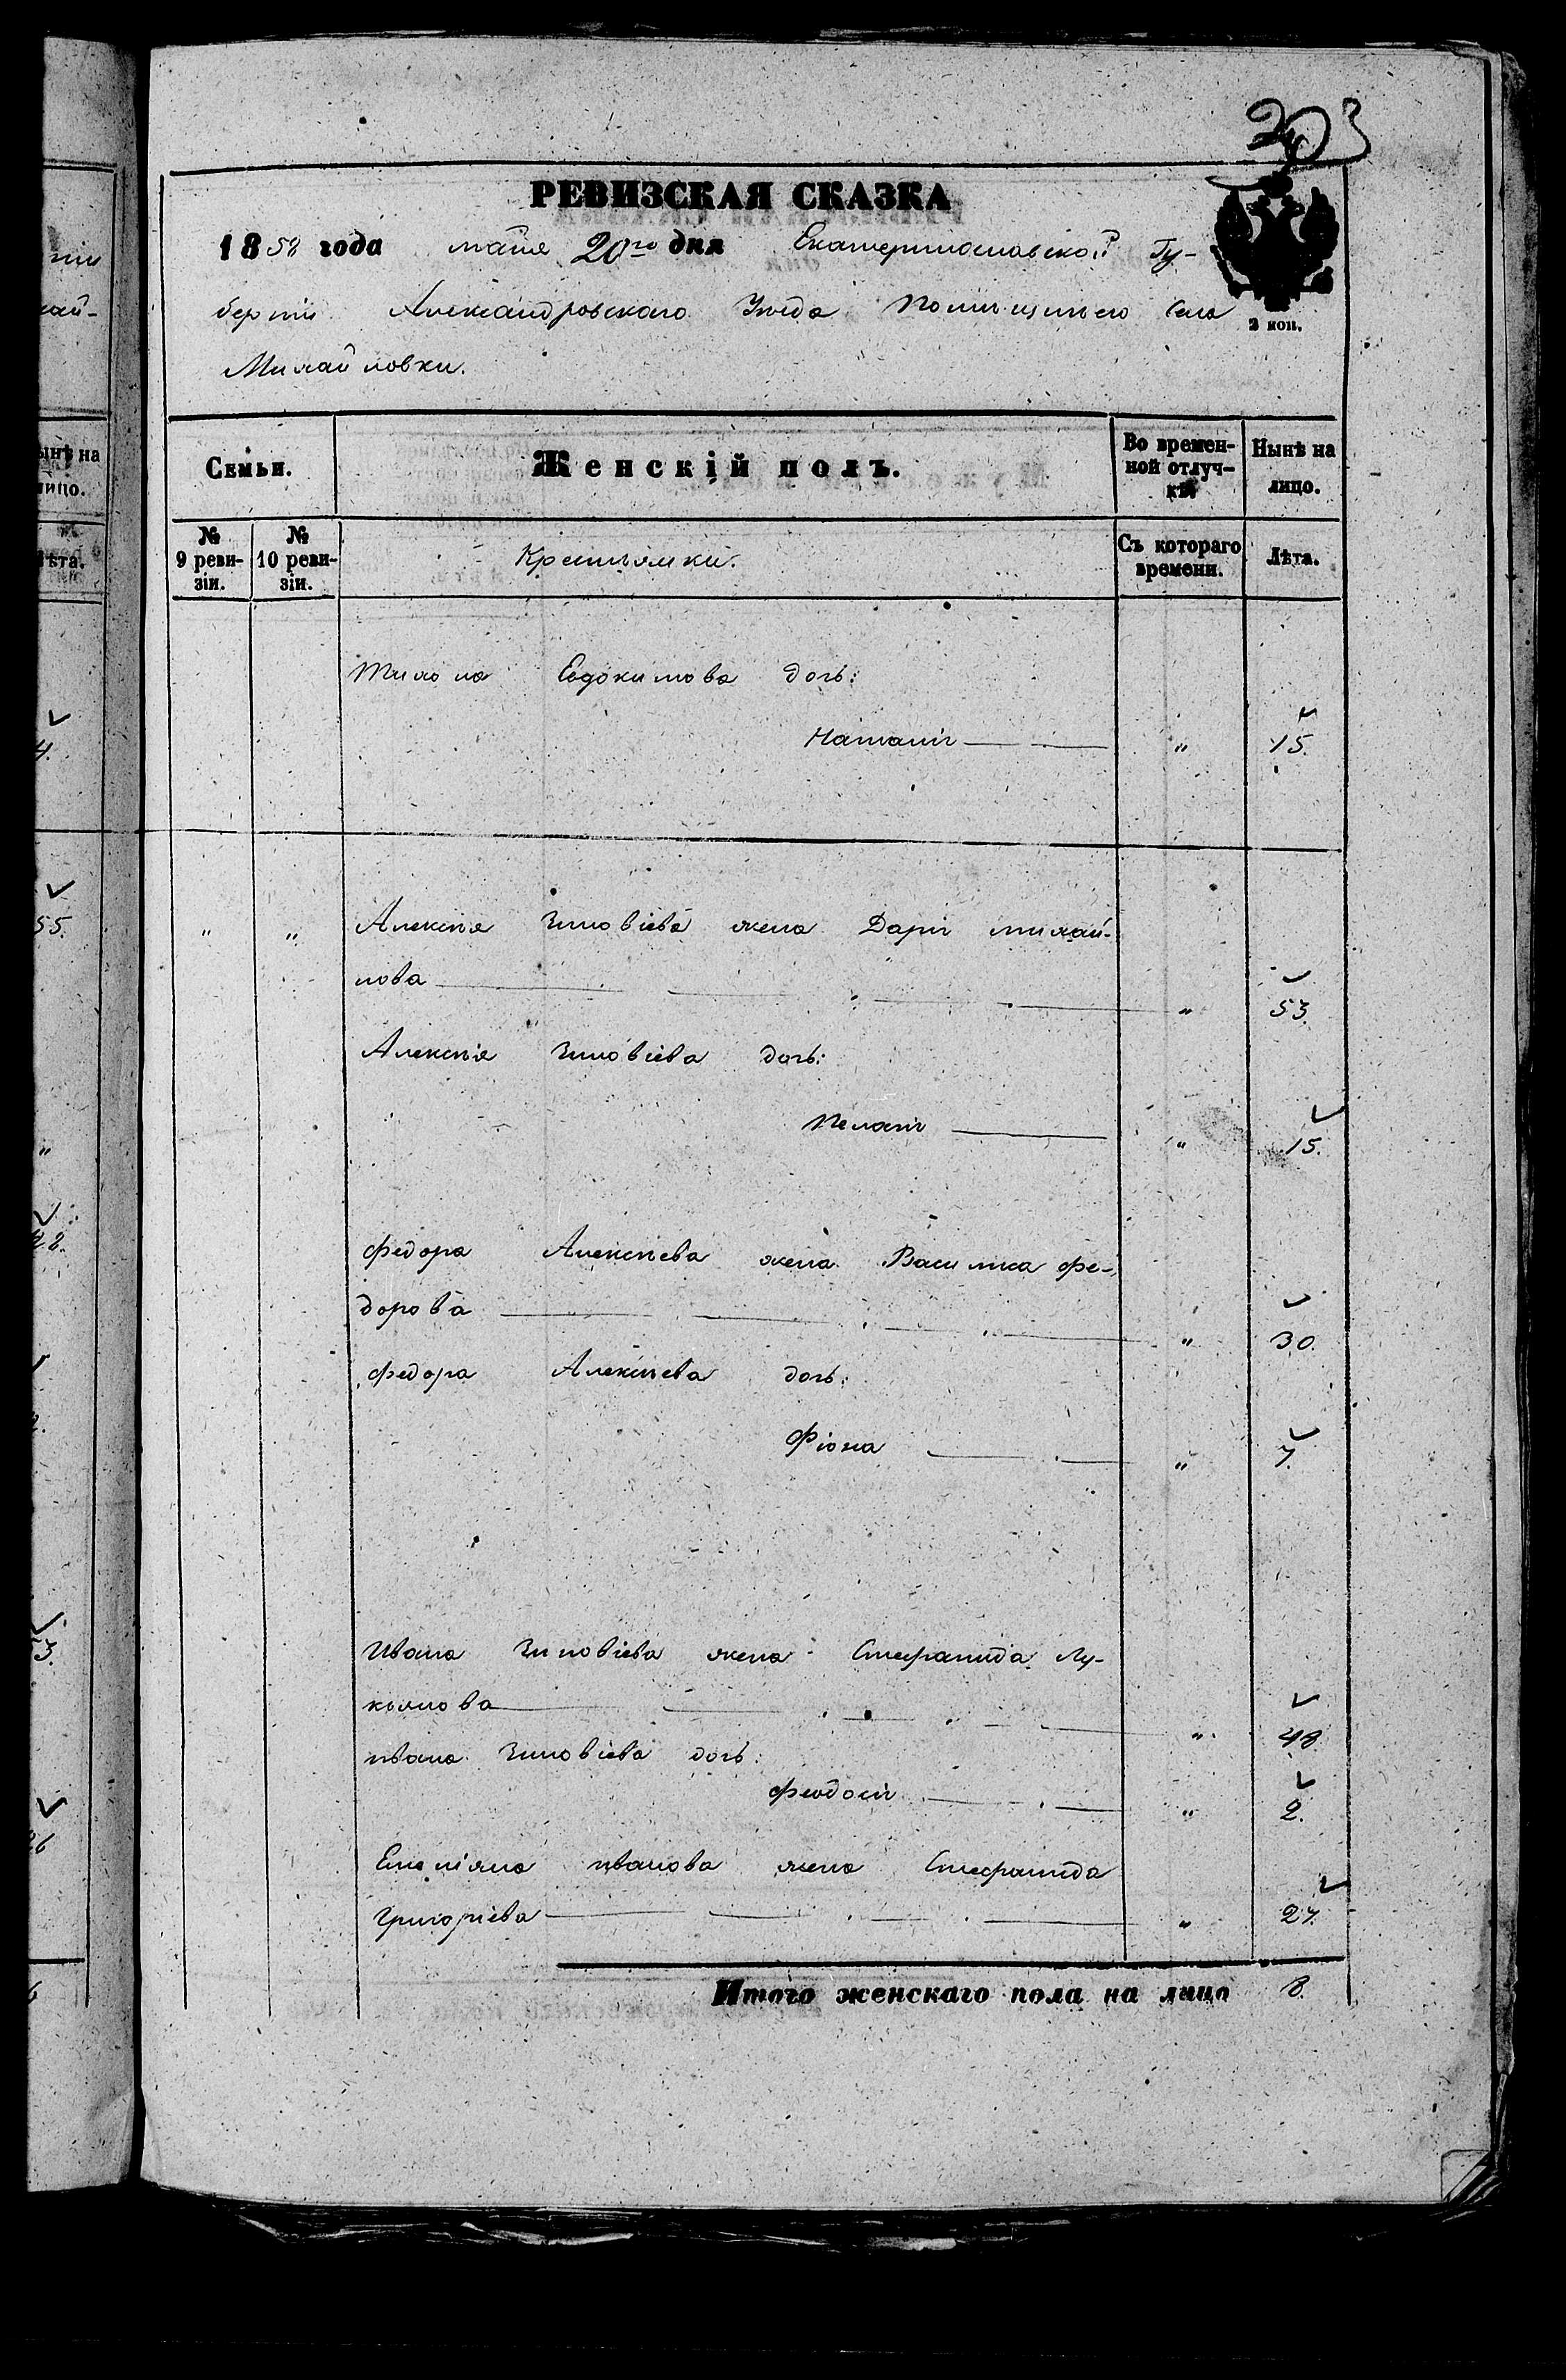 203
РЕВИЗСКАЯ СКАЗКА
1858 года маия 20го дня Екатеринославской Гу-
берніи Александровскаго Уѣзда Помѣщичьего Села
2 коп.
Михайловки.
Семьи.
Женскій полъ.
Во времен-
ной отлуч-
кѣ
Нынѣ на
лицо.
№
9 реви-
зіи.
№
10 реви-
зіи.
Крестьянки.
Съ котораго
времени.
Лѣта.
Евдокимова дочь:
Наталія " 15.
" " Алексѣя Зиновіева жена Дарія михай-
лова " 53.
Алексѣя Зиновіева дочь:
Пелагія " 15.
Федора Алексѣева жена Василиса фе-
дорова " 30.
Федора Алексѣева дочь:
Фіона " 7.
Ивана Зиновіева жена Стефанида Лу-
кьянова " 48
ивана Зиновіева дочь:
Феодосія " 2.
Емеліяна иванова жена Стефанида
Григоріева " 27.
Итого женскаго пола на лицо 8.